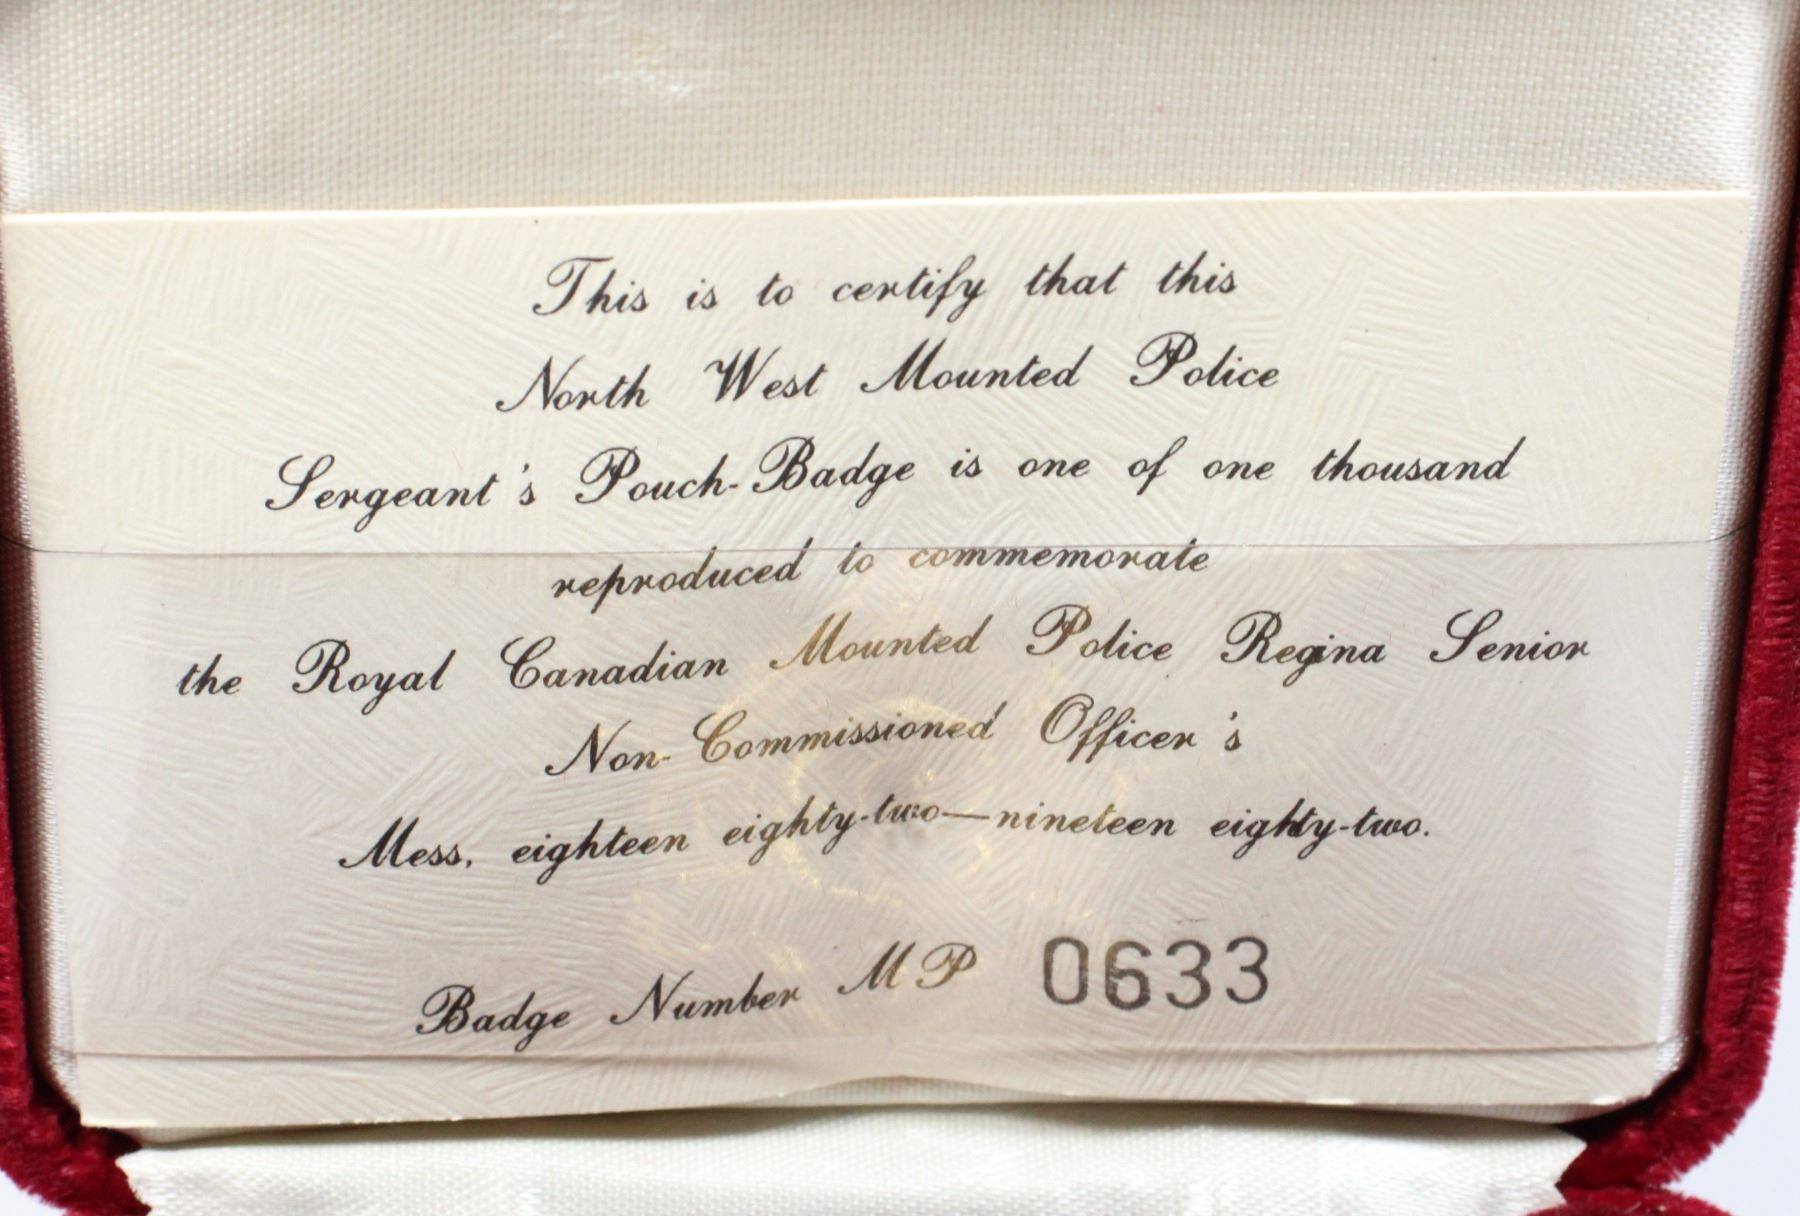 This is to certify that this
North West Mounted Police
Sergeant's Pouch-Badge is one of one thousand
reproduced to commemorate
the Royal Canadian Mounted Police Regina Senior
Non-Commissioned Officer's
Mess, eighteen eighty-two—nineteen eighty-two.
Badge Number MP 0633